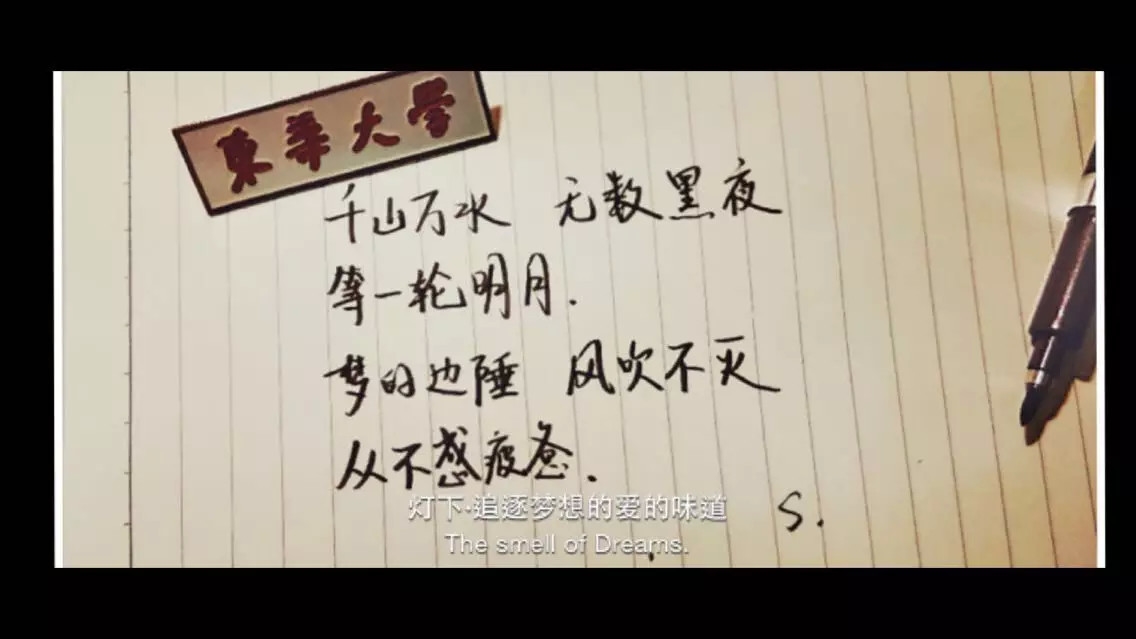 東華大學
千山万水 无数黑夜
等一轮明月.
梦的边陲 风吹不灭
从不感疲惫.
S.
灯下·追逐梦想的爱的味道
The smell of Dreams.